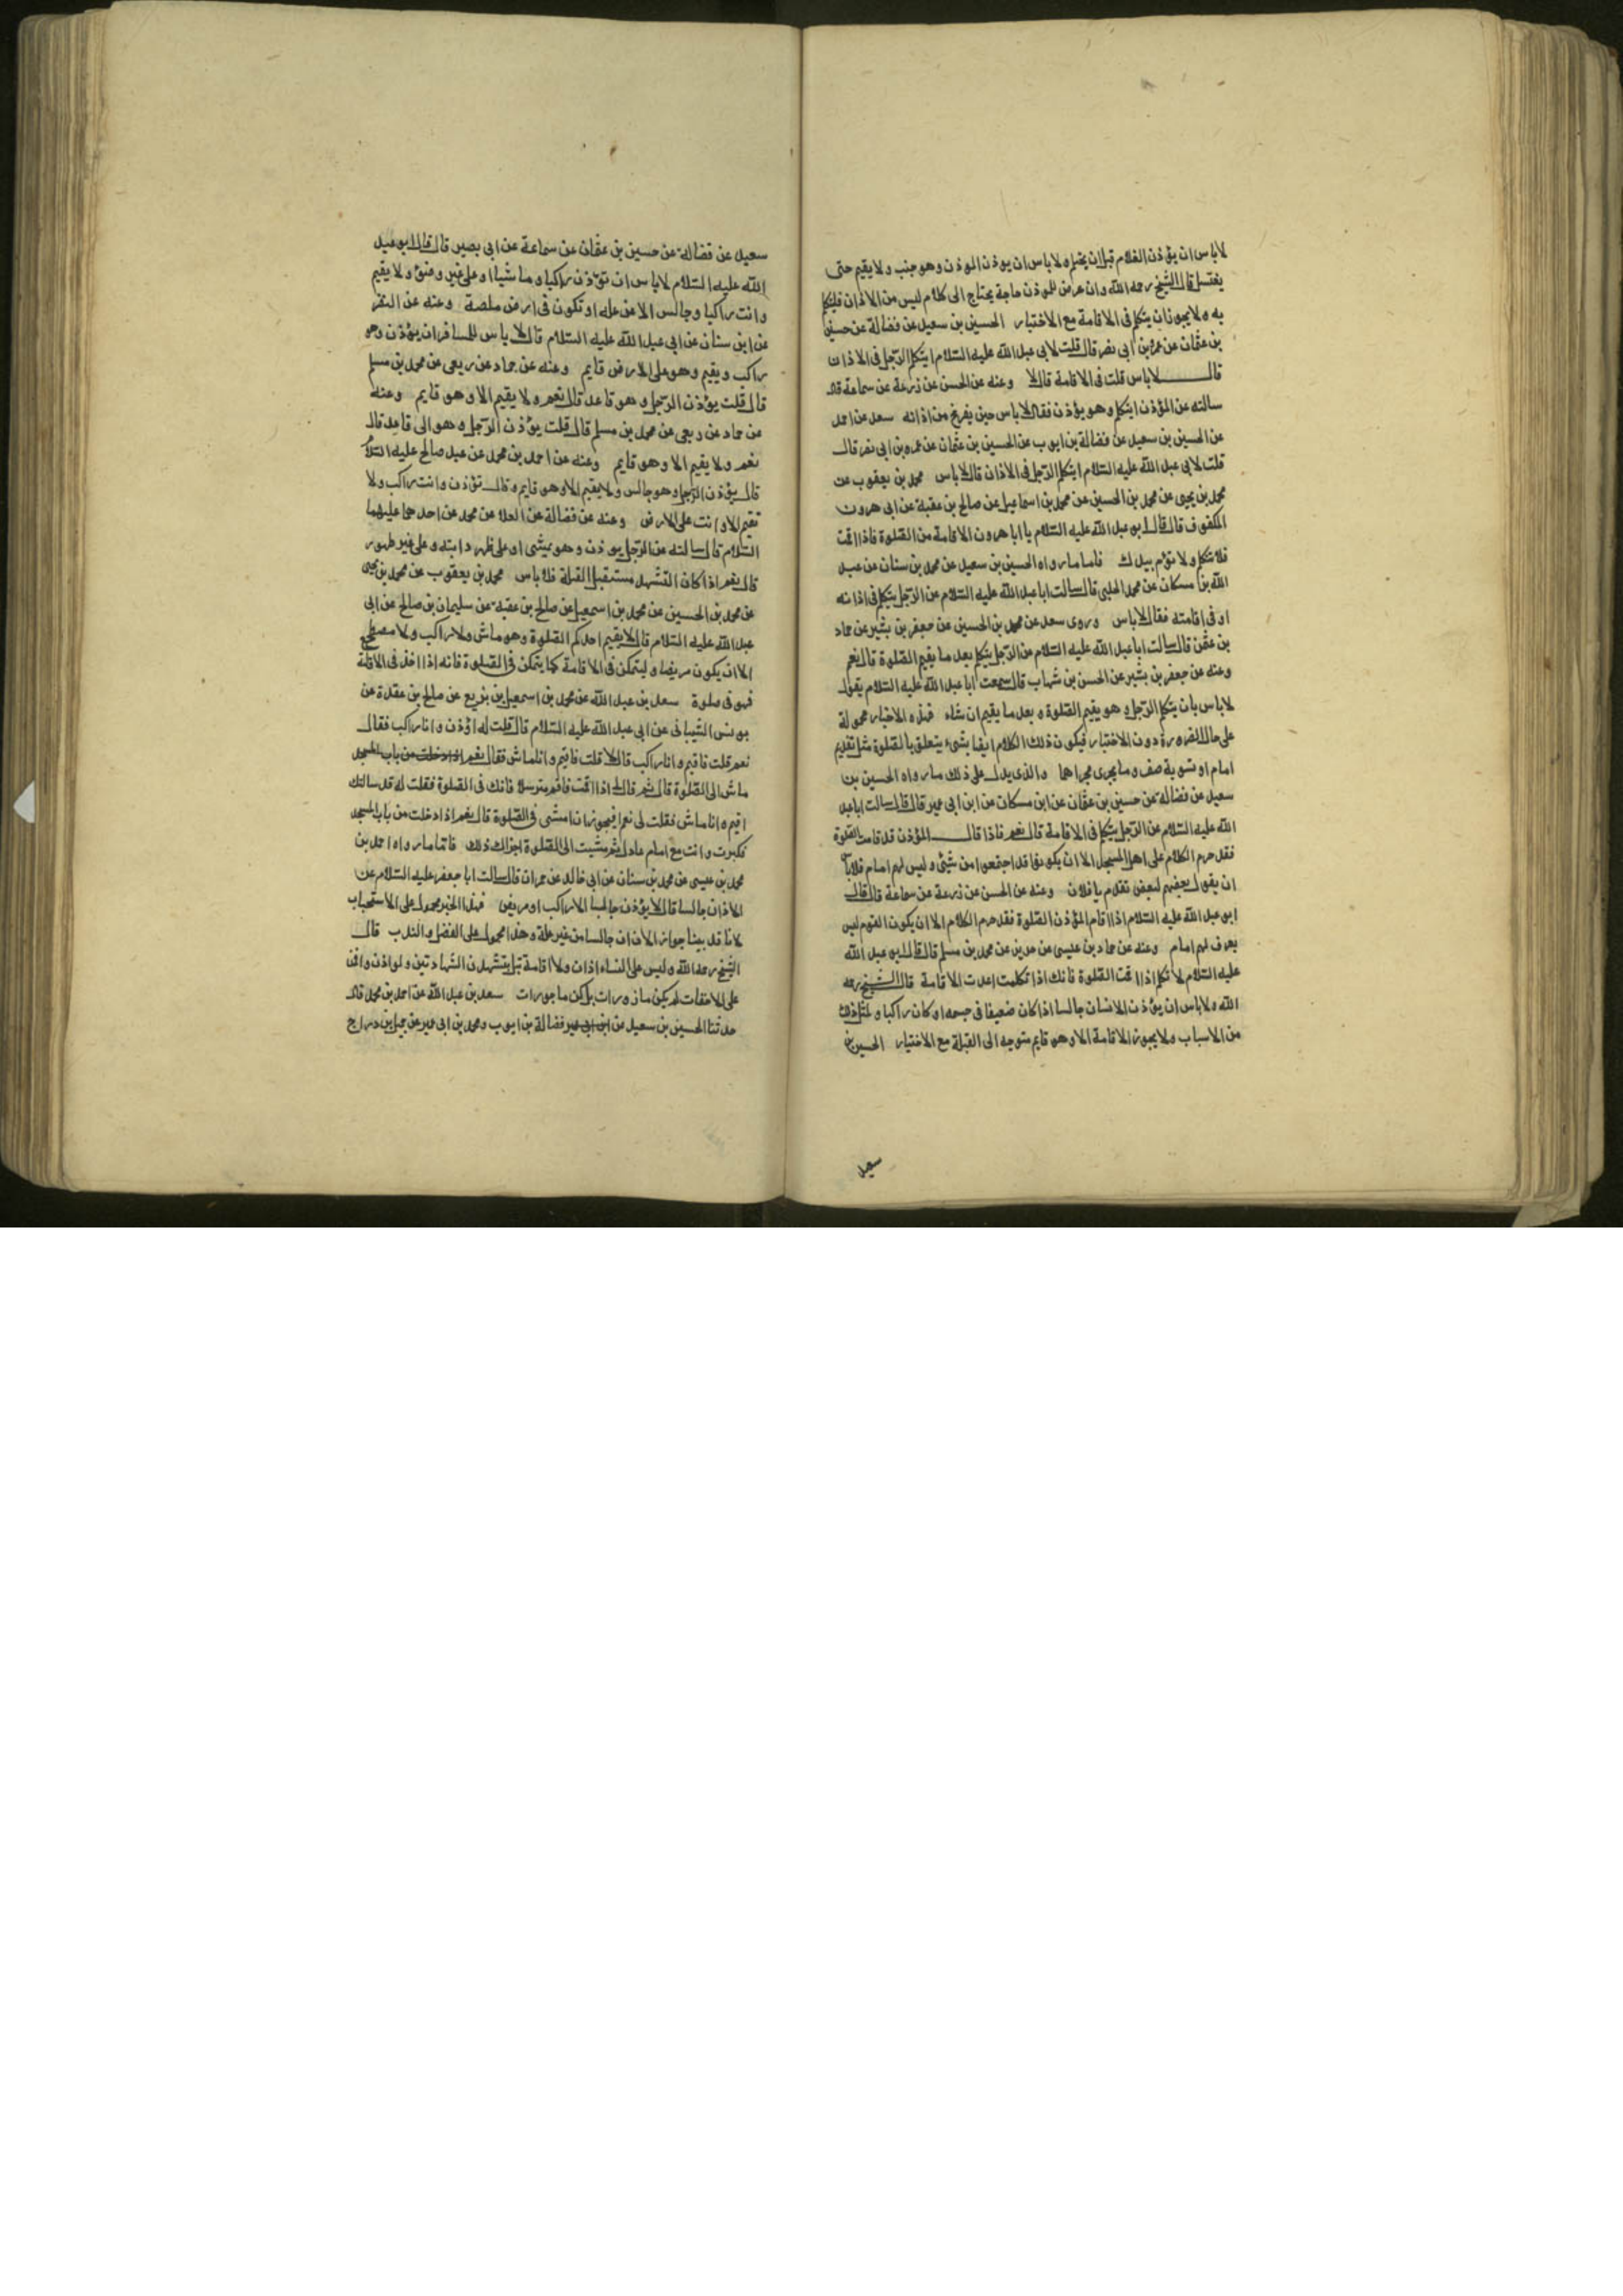 لاباس ان يؤذن الغلام قبل ان يحتلم ولا باس ان يوذن الموذن وهو جنب ولا يقيم حتى
يغتسل قال الشيخ رحمه الله وان عرض للموذن حاجة يحتاج الى كلام ليس من الاذان فليتكلم
به ولا يجوز ان يتكلم في الاقامة مع الاختيار الحسين بن سعيد عن فضالة عن حسين
بن عثمان عن عمرو بن ابى نصر قال قلت لابى عبد الله عليه السلام ايتكلم الرجل في الاذان
قال لاباس قلت في الاقامة قال لا وعنه عن الحسن عن زرعة عن سماعة قال
سالته عن المؤذن ايتكلم وهو يؤذن فقال لا باس حين يفرغ من اذانه سعد عن احمد
عن الحسين بن سعيد عن فضالة بن ايوب عن الحسين بن عثمان عن عمرو بن ابى نصر قال
قلت لابى عبد الله عليه السلام ايتكلم الرجل في الاذان قال لا باس محمد بن يعقوب عن
محمد بن يحيى عن محمد بن الحسين عن محمد بن اسماعيل عن صالح بن عقبة عن ابى هرون
المكفوف قال قال ابو عبد الله عليه السلام يا ابا هرون الاقامة من الصلوة فاذا اقمت
فلا تتكلم ولا تؤم بيدك فاما ما رواه الحسين بن سعيد عن محمد بن سنان عن عبد
الله بن مسكان عن محمد الحلبى قال سالت ابا عبد الله عليه السلام عن الرجل يتكلم في اذانه
او في اقامته فقال لا باس وروى سعد عن محمد بن الحسين عن جعفر بن بشير عن حماد
بن عثمن قال سالت ابا عبد الله عليه السلام عن الرجل يتكلم بعد ما يقيم الصلوة قال نعم
وعنه عن جعفر بن بشير عن الحسن بن شهاب قال سمعت ابا عبد الله عليه السلام يقول
لاباس بان يتكلم الرجل وهو يقيم الصلوة وبعد ما يقيم ان شاء فهذه الاخبار محمولة
على حال الضرورة دون الاختيار فيكون ذلك الكلام ايضا بشىء يتعلق بالصلوة مثل تقديم
امام او تسوية صف وما يجرى مجراهما والذى يدل على ذلك ما رواه الحسين بن
سعيد عن فضالة عن حسين بن عثمان عن ابن مسكان عن ابن ابى عمير قال قال سالت ابا عبد
الله عليه السلام عن الرجل يتكلم في الاقامة قال نعم فاذا قال المؤذن قد قامت الصلوة
فقد حرم الكلام على اهل المسجد الا ان يكونوا قد اجتمعوا من شتى وليس لهم امام فلا باس
ان يقول بعضهم لبعض تقدم يا فلان وعنه عن الحسن عن زرعة عن سماعة قال قال
ابو عبد الله عليه السلام اذا اقام المؤذن الصلوة فقد حرم الكلام الا ان يكون القوم ليس
يعرف لهم امام وعنه عن حماد بن عيسى عن حريز عن محمد بن مسلم قال قال ابو عبد الله
عليه السلام لا تتكلم اذا اقمت الصلوة فانك اذا تكلمت اعدت الاقامة قال الشيخ رحمه
الله ولا باس ان يؤذن الانسان جالسا اذا كان ضعيفا في جسمه او كان راكبا ولمثل ذلك
من الاسباب ولا يجوز الاقامة الا وهو قايم متوجه الى القبلة مع الاختيار الحسين بن
سعيد
سعيد عن فضالة عن حسين بن عثمان عن سماعة عن ابى بصير قال قال ابو عبد
الله عليه السلام لا باس ان تؤذن راكبا وماشيا او على غير وضوء ولا يقيم
وانت راكبا وجالس الا من علة او تكون في ارض ملصة وعنه عن النضر
عن ابن سنان عن ابى عبد الله عليه السلام قال لا باس للمسافر ان يؤذن وهو
راكب ويقيم وهو على الارض قايم وعنه عن حماد عن ربعى عن محمد بن مسلم
قال قلت يؤذن الرجل وهو قاعد قال نعم ولا يقيم الا وهو قايم وعنه
عن حماد عن ربعى عن محمد بن مسلم قال قلت يؤذن الرجل وهو الى قاعد قال
نعم ولا يقيم الا وهو قايم وعنه عن احمد بن محمد عن عبد صالح عليه السلام
قال يؤذن الرجل وهو جالس ولا يقيم الا وهو قايم وقال تؤذن وانت راكب ولا
تقيم الا وانت على الارض وعنه عن فضالة عن العلا عن محمد عن احدهما عليهما
السلام قال سالته عن الرجل يوذن وهو يمشى او على ظهر دابته وعلى غير طهور
قال نعم اذا كان التشهد مستقبل القبلة فلا باس محمد بن يعقوب عن محمد بن يحيى
عن محمد بن الحسين عن محمد بن اسمعيل عن صالح بن عقبة عن سليمان بن صالح عن ابى
عبد الله عليه السلام قال لا يقيم احدكم الصلوة وهو ماش ولا راكب ولا مضطجع
الا ان يكون مريضا وليتمكن في الاقامة كما يتمكن في الصلوة فانه اذا اخذ في الاقامة
فهو في صلوة سعد بن عبد الله عن محمد بن اسمعيل بن بزيع عن صالح بن عقدة عن
يونس الشيبانى عن ابى عبد الله عليه السلام قال قلت له اؤذن وانا راكب فقال
نعم قلت فاقيم وانا راكب قال لا قلت فاقيم وانا ماش فقال نعم اذا دخلت من باب المسجد
ماش الى الصلوة قال ثم قال لى اذا اقمت فاقم مترسلا فانك في الصلوة فقلت له قد سالتك
اقيم وانا ماش فقلت لى نعم افيجوز ان امشى في الصلوة قال نعم اذا دخلت من باب المسجد
فكبرت وانت مع امام عادل ثم مشيت الى الصلوة اجزاك ذلك فاما ما رواه احمد بن
محمد بن عيسى عن محمد بن سنان عن ابى خالد عن حمران قال سالت ابا جعفر عليه السلام عن
الاذان جالسا قال لا يؤذن جالسا الا راكب او مريض فهذا الخبر محمول على الاستحباب
لانا قد بينا جواز الاذان جالسا من غير علة وهذا محمول على الفضل والندب قال
الشيخ رحمه الله وليس على النساء اذان ولا اقامة بل يتشهدن الشهادتين ولو اذن واقمن
على الاخفات لم يكن مازورات بل كن ماجورات سعد بن عبد الله عن احمد بن محمد قال
حدثنا الحسين بن سعيد عن ابن ابى عمير فضالة بن ايوب ومحمد بن ابى عمير عن جميل بن دراج